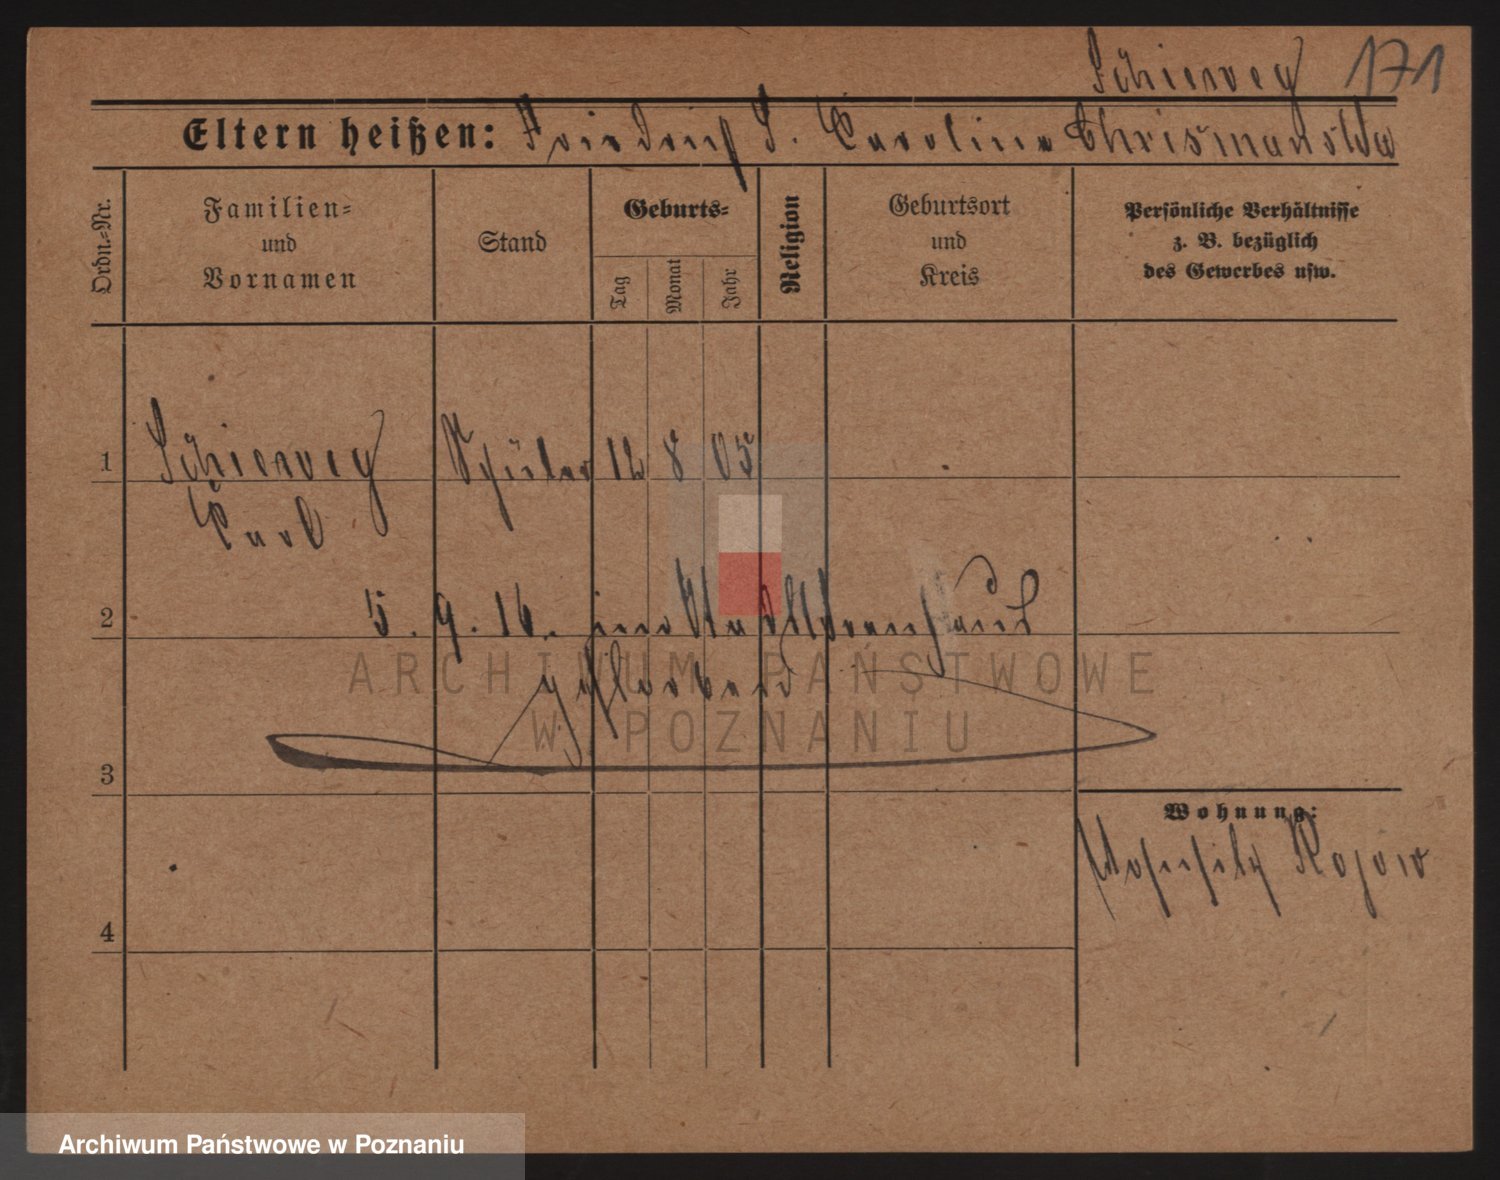 Schierveg 171
Eltern heißen: Friedrich S. Carolina Chrismanska
Ordn.-Nr.
Familien-
und
Vornamen
Stand
Geburts-
Tag
Monat
Jahr
Religion
Geburtsort
und
Kreis
Persönliche Verhältnisse
z. B. bezüglich
des Gewerbes usw.
1 Schierveg Schüler 12 8 05
Carl
2 5. 9. 16. im Stadtkrankenhaus
gestorben
ARCHIWUM PAŃSTWOWE
W POZNANIU
3
Wohnung:
4
Archiwum Państwowe w Poznaniu